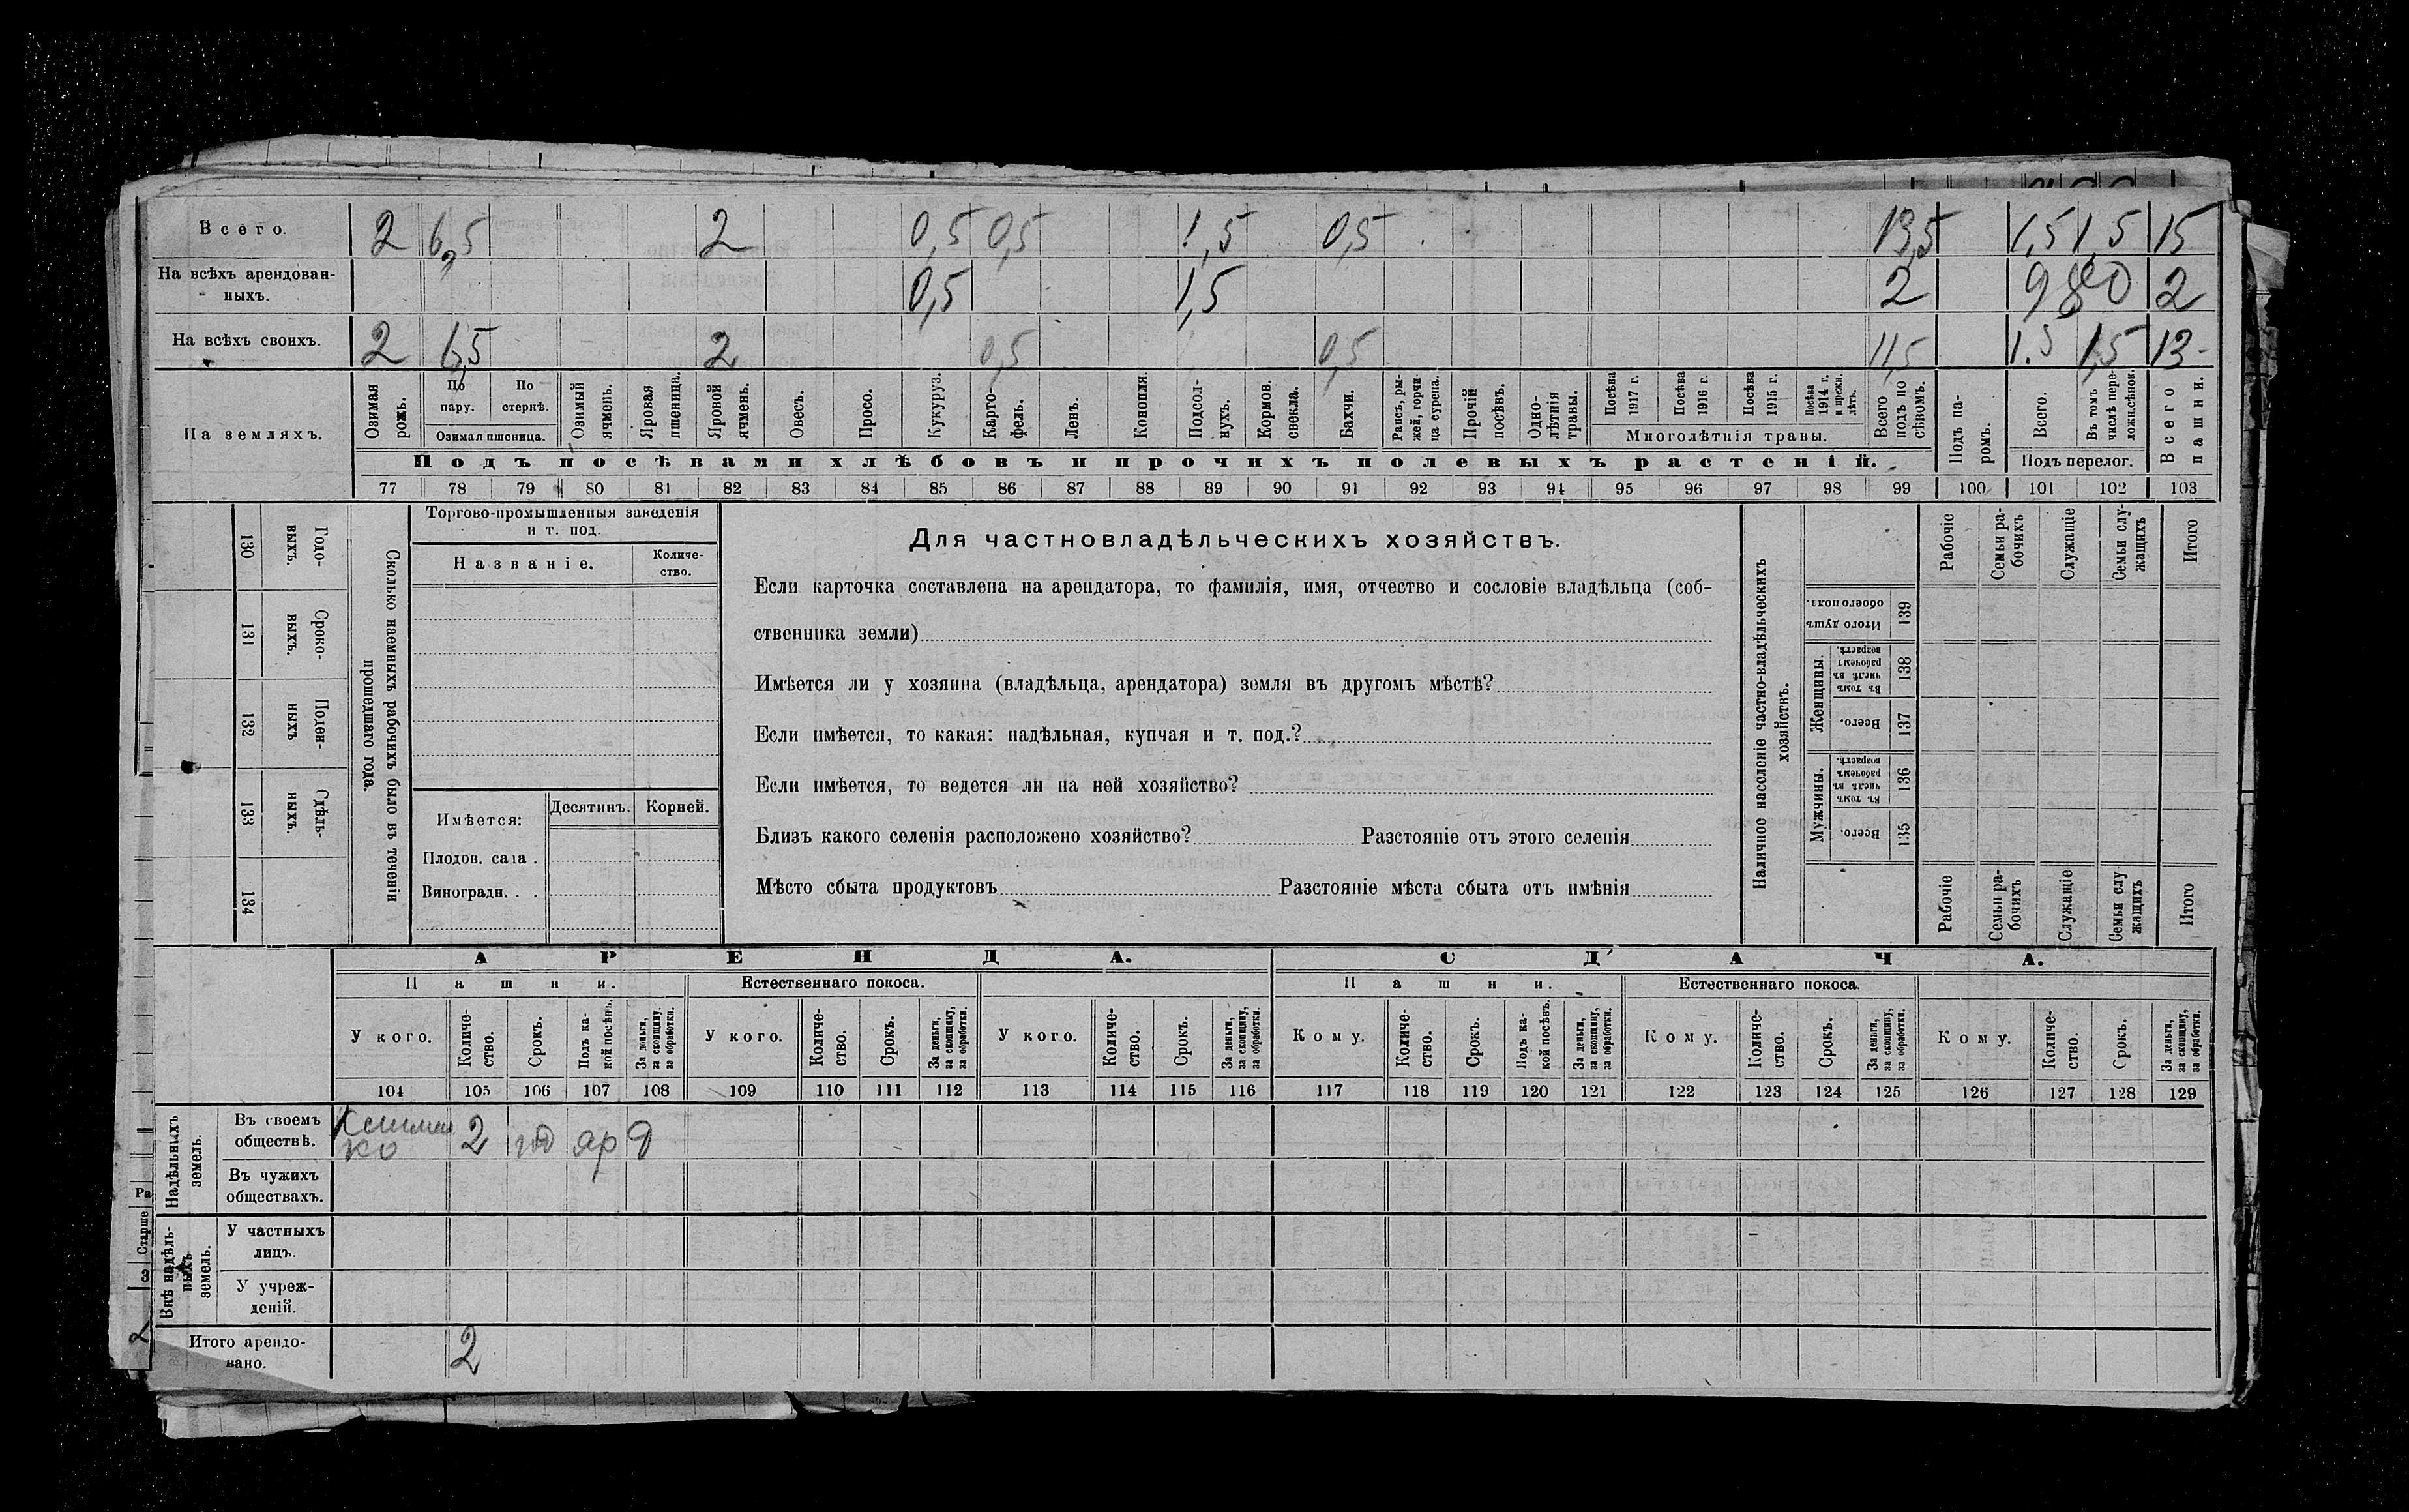 Всего. 2 6,5 2 0,5 0,5 1,5 0,5 13,5 1,5 1,5 15
На всѣхъ арендован-
ныхъ. 0,5 1,5 2 2
На всѣхъ своихъ. 2 6,5 2 0,5 0,5 11,5 1.5 1,5 13-
На земляхъ.
Озимая рожь.
По пару.
По стернѣ.
Озимая пшеница.
Озимый ячмень.
Яровая пшеница.
Яровой ячмень.
Овесъ.
Просо.
Кукуруз.
Карто-
фель.
Ленъ.
Конопля.
Подсол-
нухъ.
Кормов. свекла.
Бахчи.
Рапсъ, ры-
жей, горчи
ца сурепа.
Прочій посѣвъ.
Одно-
лѣтнія
травы.
Посѣва 1917 г.
Посѣва 1916 г.
Посѣва 1915 г.
Посѣва 1914 г. и прежн. лѣтъ.
Многолѣтнія травы.
Всего подъ по
сѣвомъ.
Подъ посѣвами хлѣбовъ и прочихъ полевыхъ растеній.
Подъ па-
ромъ.
Всего.
Въ томъ числѣ пере-
ложн.сѣнок.
Подъ перелог.
Всего пашни.
77 78 79 80 81 82 83 84 85 86 87 88 89 90 91 92 93 94 95 96 97 98 99 100 101 102 103
130 Годо-
выхъ.
131 Сроко-
ныхъ.
132 Поден-
ныхъ
133 Сдѣль-
ныхъ.
134
Сколько наемныхъ рабочихъ было въ теченіи
прошедшаго года.
Торгово-промышленныя заведенія
и т. под.
Названіе.
Количе-
ство.
Имѣется:
Десятинъ.
Корней.
Плодов. сада .
Виноградн. . .
Для частновладѣльческихъ хозяйствъ.
Если карточка составлена на арендатора, то фамилія, имя, отчество и сословіе владѣльца (соб-
ственника земли)
Имѣется ли у хозяина (владѣльца, арендатора) земля въ другомъ мѣстѣ?
Если имѣется, то какая: надѣльная, купчая и т. под.?
Если имѣется, то ведется ли на ней хозяйство?
Близъ какого селенія расположено хозяйство? Разстояніе отъ этого селенія
Мѣсто сбыта продуктовъ Разстояніе мѣста сбыта отъ имѣнія
Наличное населеніе частно-владѣльческихъ
хозяйствъ.
Рабочіе
Семьи ра-
бочихъ
Служащіе
Семьи слу-
жащихъ
Итого
Итого душъ
обоего пола.
139
Женщины.
Въ томъ
числѣ въ
рабочемъ
возрастѣ.
138
Всего.
137
Мужчины.
Въ томъ
числѣ въ
рабочемъ
возрастѣ.
136
Всего.
135
Рабочіе
Семьи ра-
бочихъ
Служащіе
Семьи слу
жащихъ
Итого
АРЕНДА. СДАЧА.
Пашни. Естественнаго покоса. Пашни. Естественнаго покоса.
У кого. Количе-
ство. Срокъ. Подъ ка-
кой посѣвъ. За деньги,
за скопщину,
за обработки.
У кого. Количе-
ство. Срокъ. За деньги,
за скопщину,
за обработки.
У кого. Количе-
ство. Срокъ. За деньги,
за скопщину,
за обработки.
Кому. Количе-
ство. Срокъ. Подъ ка-
кой посѣвъ. За деньги,
за скопщину,
за обработки.
Кому. Количе-
ство. Срокъ. За деньги,
за скопщину,
за обработки.
Кому. Количе-
ство. Срокъ. За деньги,
за скопщину,
за обработки.
104 105 106 107 108 109 110 111 112 113 114 115 116 117 118 119 120 121 122 123 124 125 126 127 128 129
Надѣльныхъ
земель.
Въ своемъ
обществѣ. 2 яр д
Въ чужихъ
обществахъ.
Внѣ надѣль-
ныхъ
земель.
У частныхъ
лицъ.
У учреж-
деній.
Итого арендо-
вано. 2
Ра
Старше